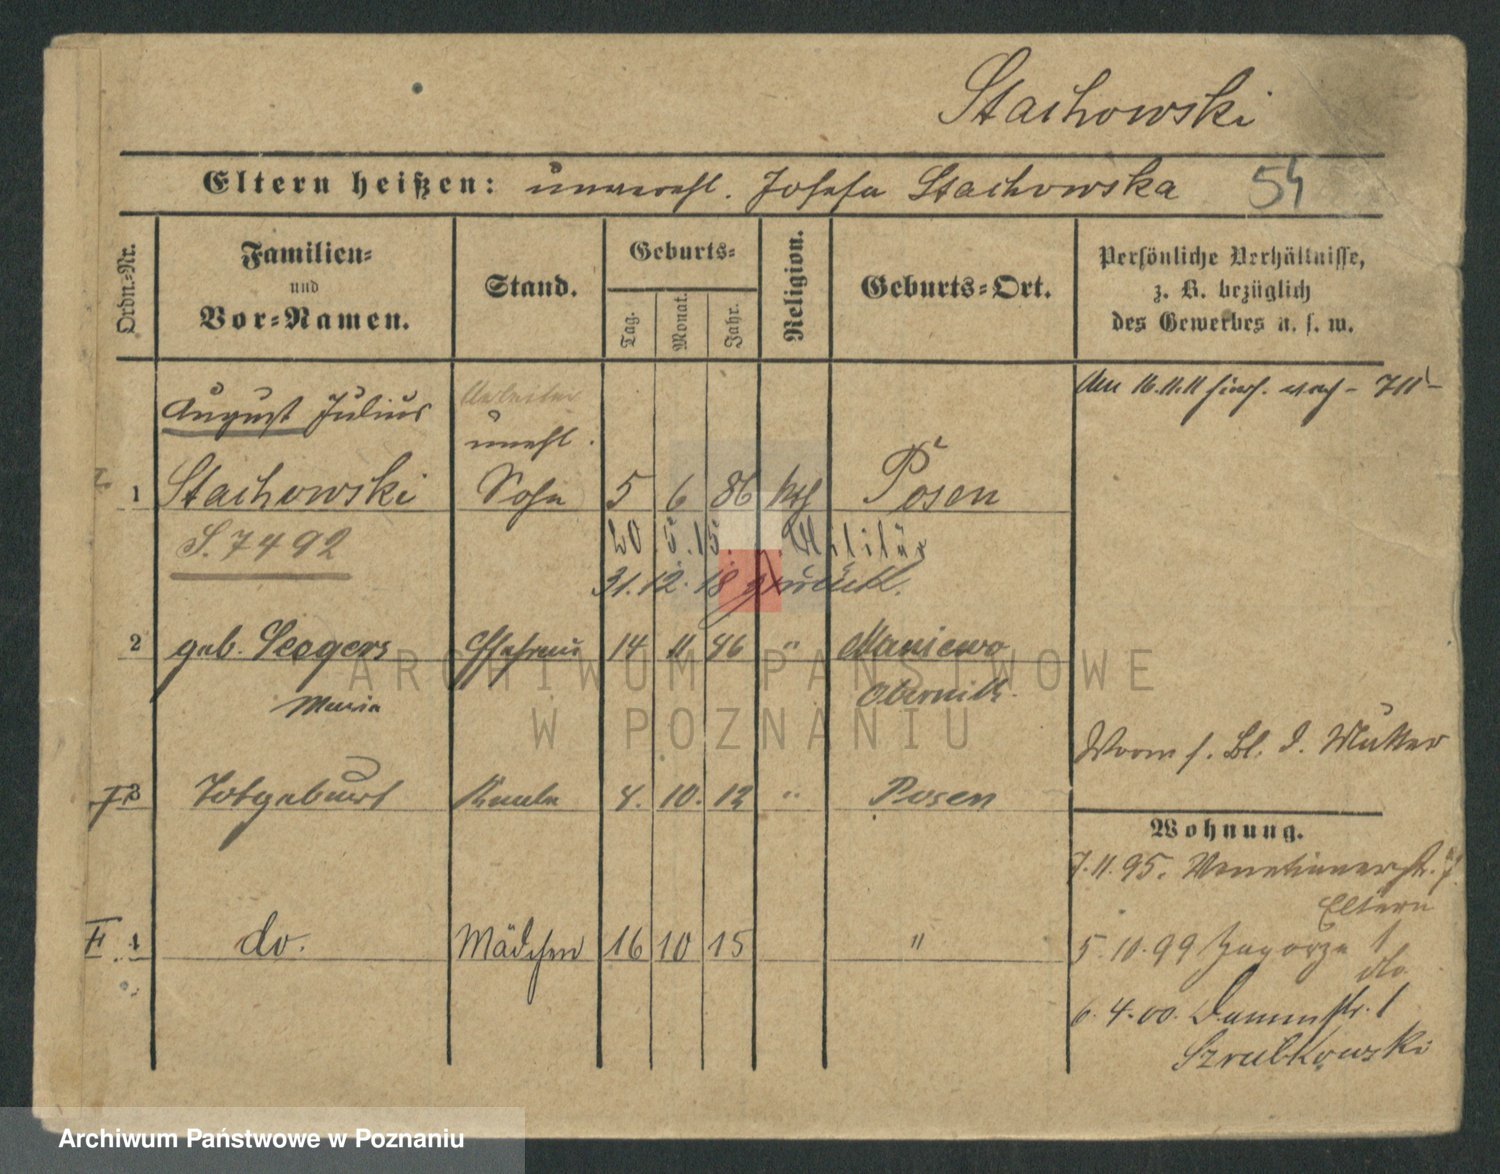 Stachowski
Eltern heißen: unverehl. Josefa Stachowska 54
Ordn.-Nr.
Familien-
und
Vor-Namen.
Stand.
Geburts-
Tag.
Monat.
Jahr.
Religion.
Geburts-Ort.
Persönliche Verhältnisse,
z. B. bezüglich
des Gewerbes u. s. w.
Am 16.11.11
August Julius Arbeiter
unehl.
1 Stachowski Sohn 5 6 86 kth Posen
S. 7492 20.5.15. Militär
31.12.18 zurück.
2 geb. Seegers Ehefrau 14 11 86 " Maniewo
Maria Obornik
Vorm s. Bl. d. Mutter
3 Totgeburt Knabe 4. 10. 12 " Posen
Wohnung.
7.11.95. Venetianerstr. 7
Eltern
4 do. Mädchen 16 10 15 "
5.10.99 Zagorze 1
do
6.4.00. Dammstr. 1
Szrubkowski
ARCHIWUM PAŃSTWOWE
W POZNANIU
Archiwum Państwowe w Poznaniu